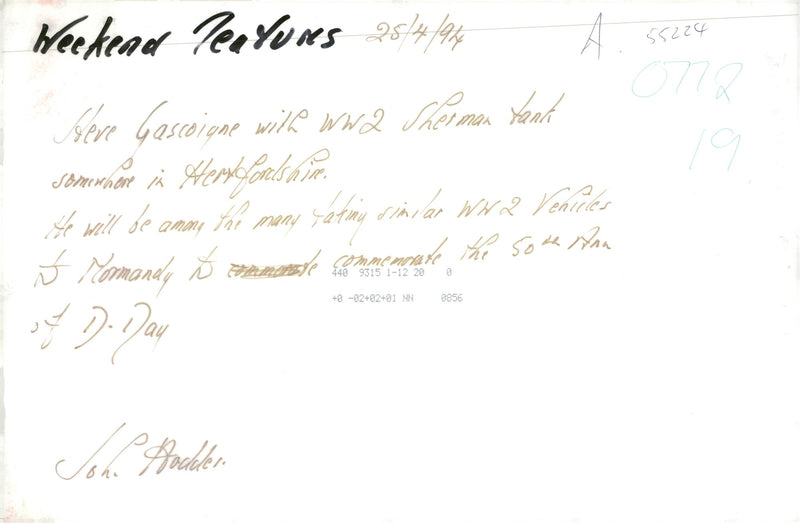 Weekend Features 25/4/94 A. 55224
0772
19
Steve Gascoigne with WW2 Sherman tank
somewhere in Hertfordshire.
He will be among the many taking similar WW2 Vehicles
to Normandy to commemorate the 50th Ann
440 9315 1-12 20 0
+0 -02+02+01 NN 0856
of D-Day
John Hodder.